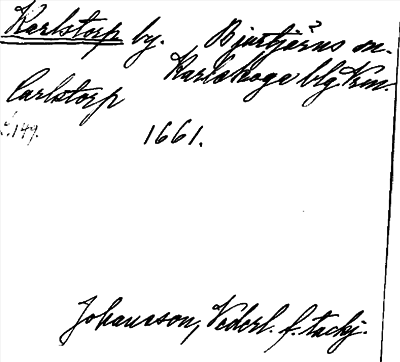 Karlstorp by. Bjurtjärns sn.
Karlskoga blg Vrm.
Carlstorp
s. 149. 1661.
Johansson, Vederl. f. tackj.